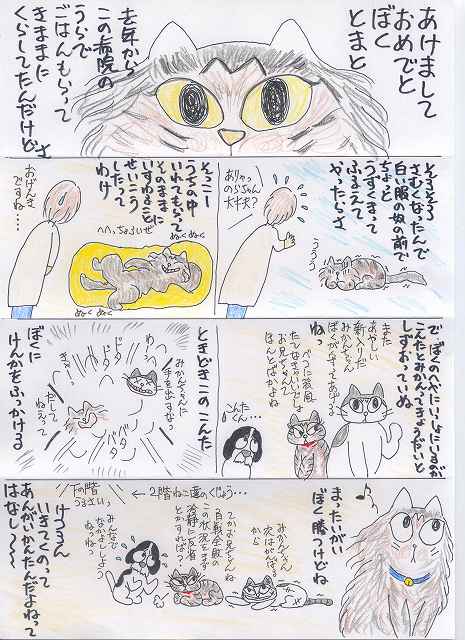 あけまして
おめでと
ぼく
とまと
去年から
この病院の
うらで
ごはんもらって
きままに
くらしてたんだけどさ
そろそろ
さむくなったんで
白い服の奴の前で
ちょっと
うずくまって
ふるえて
やったらさ
ありゃっ
のらちゃん
大丈夫?
ううう
そっこー
うちの中
いれてもらって
そのままに
いすわること
せいこう
したって
わけ
へへっちょろいぜ
ぬくぬく
ぬくぬく
おげんき
ですね…
で、ぼくのへやにいっしょにいるのが
こんたとみかんってきょうだいと
しずおっていぬ
また
あやしい
新入りだ
みかんちゃん
ねっ
べつに被風
お兄ちゃんって
はんとばかよね
こんた
くん…
ときどきこのこんた
ぼくに
けんかをふっかける
みかんちゃんに
手を出すなっ
わっ
ドタ
ドタ
バタン
バタン
だして
ねえって
まったいがい
ぼく勝つけどね
みかんちゃん
次はがんばる
から
でかお兄ちゃんね
自戦全敗の
この状況をまず
冷静に反省
とかすれば?
みんなで
なかよくしよう
ねっねっ
下の階
うるさいっ
←2階ねこ達のくじょう…
けつろん
いきてくのって
あんがいかんたんだよねって
はなし~~